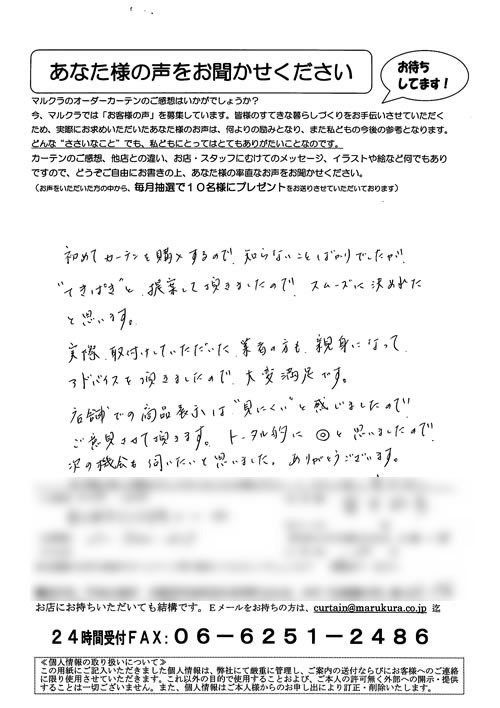 あなた様の声をお聞かせください
お待ち
してます！
マルクラのオーダーカーテンのご感想はいかがでしょうか？
今、マルクラでは「お客様の声」を募集しています。皆様のすてきな暮らしづくりをお手伝いさせていただく
ため、実際にお求めいただいたあなた様のお声は、何よりの励みとなり、また私どもの今後の参考となります。
どんな“ささいなこと”でも、私どもにとってはとてもありがたいことなのです。
カーテンのご感想、他店との違い、お店・スタッフにむけてのメッセージ、イラストや絵など何でもあり
ですので、どうぞご自由にお書きの上、あなた様の率直なお声をお聞かせください。
（お声をいただいた方の中から、毎月抽選で１０名様にプレゼントをお送りさせていただいております）
初めてカーテンを購入するので、知らないことばかりでしたが、
“てきぱき”と、提案して頂きましたので、スムーズに決めれた
と思います。
実際、取付けしていただいた、業者の方も、親身になって、
アドバイスを頂きましたので、大変満足です。
店舗での商品表示は“見にくい”と感じましたので
ご意見させて頂きます。トータル的に ◎と思いましたので、
次の機会も伺いたいと思いました。ありがとうございます。
お店にお持ちいただいても結構です。Ｅメールをお持ちの方は、curtain@marukura.co.jp 迄
２４時間受付FAX：０６－６２５１－２４８６
≪個人情報の取り扱いについて≫
この用紙にご記入いただきました個人情報は、弊社にて厳重に管理し、ご案内の送付ならびにお客様へのご連絡
に限り使用させていただきます。これ以外の目的で使用することおよび、ご本人の許可無く外部への開示・提供
することは一切ございません。また、個人情報はご本人様からのお申し出により訂正・削除いたします。